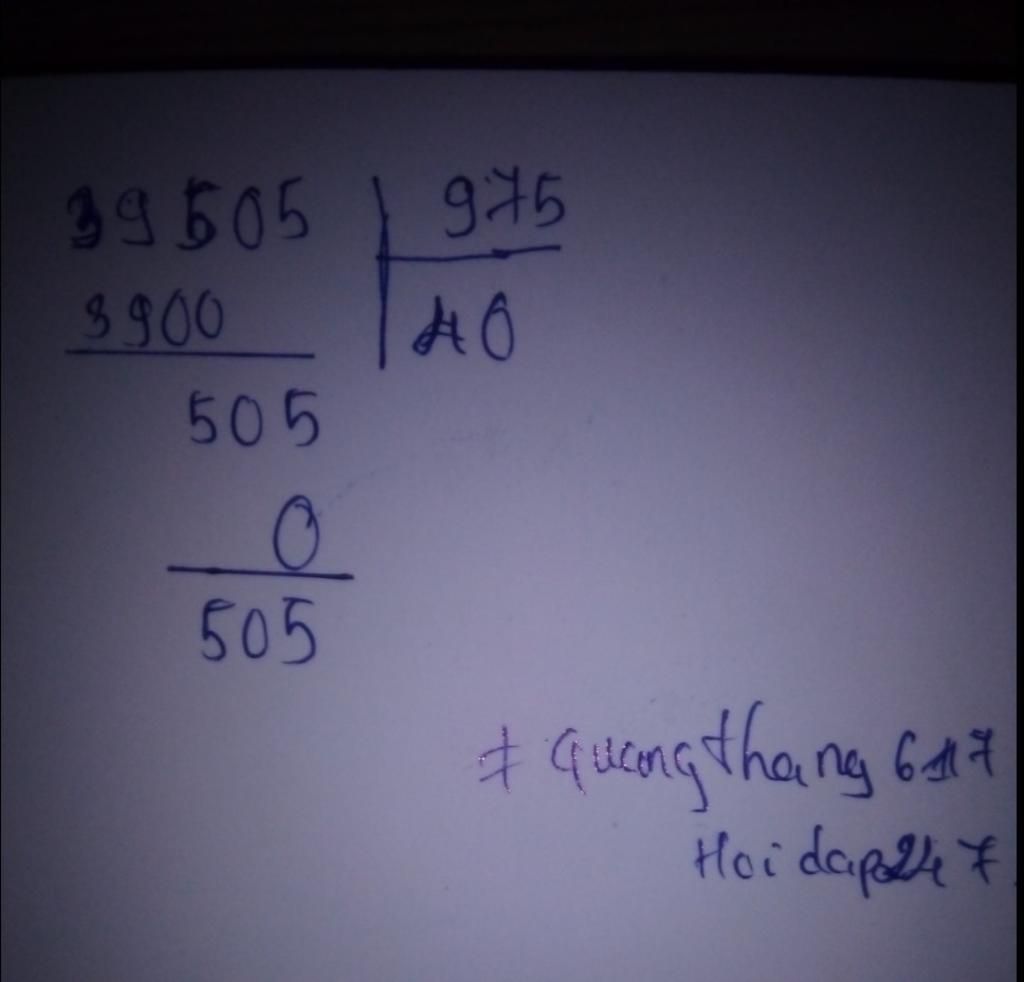 39505 975
3900 40
505
0
505
# Quangthang 617
Hoidap247